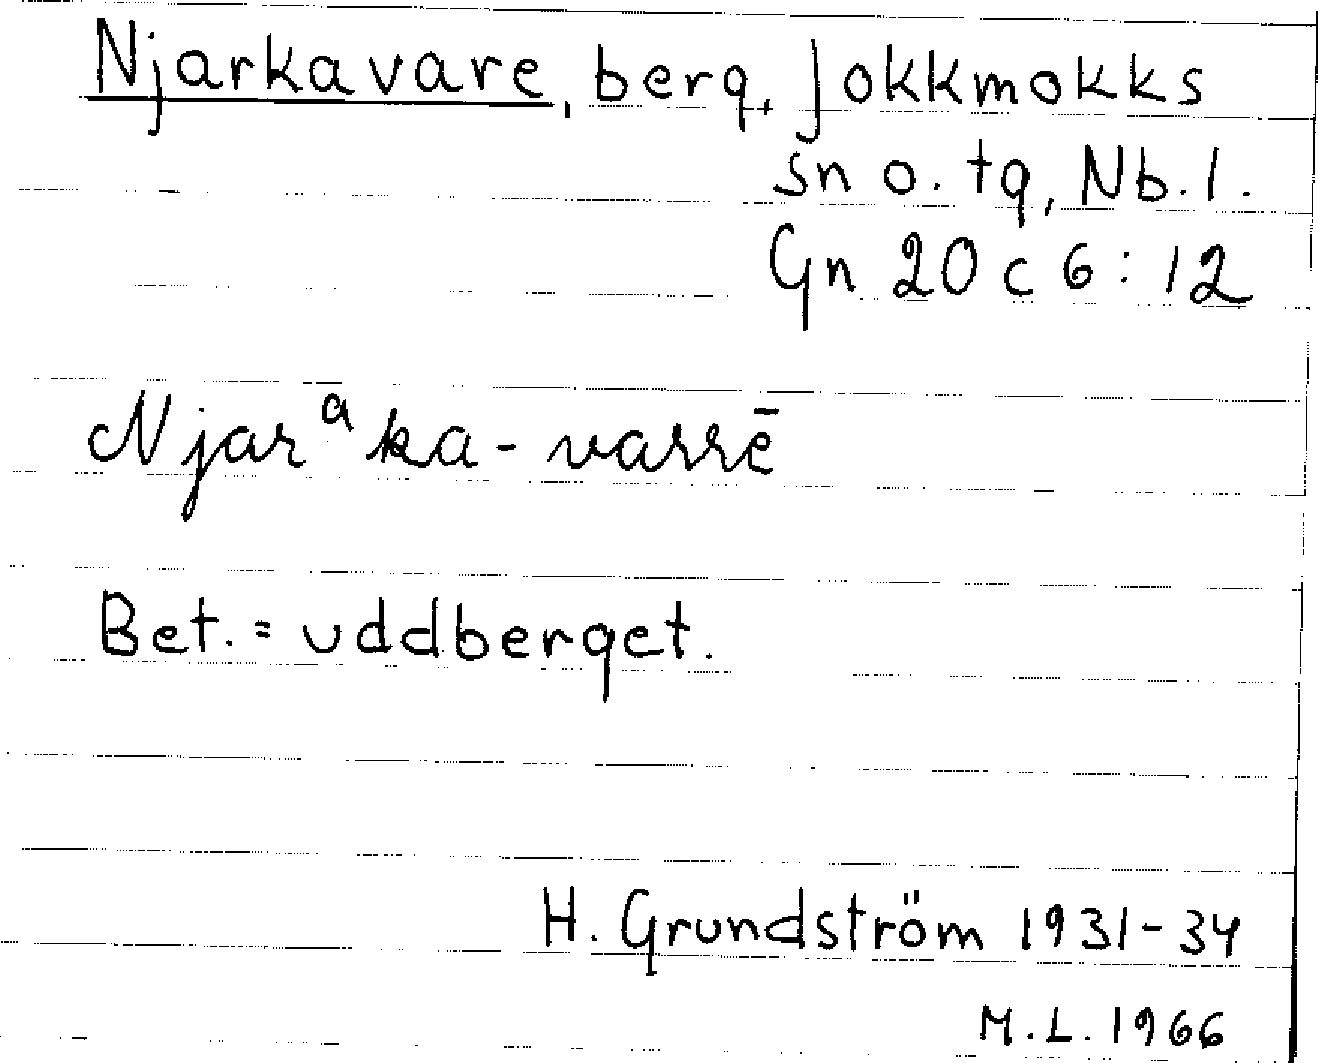 Njarkavare, berg, Jokkmokks
sn o. tg, Nb. l.
Gn 20 c 6 : 12
Njarᵃka-varrē
Bet. = uddberget.
H. Grundström 1931-34
M.L. 1966